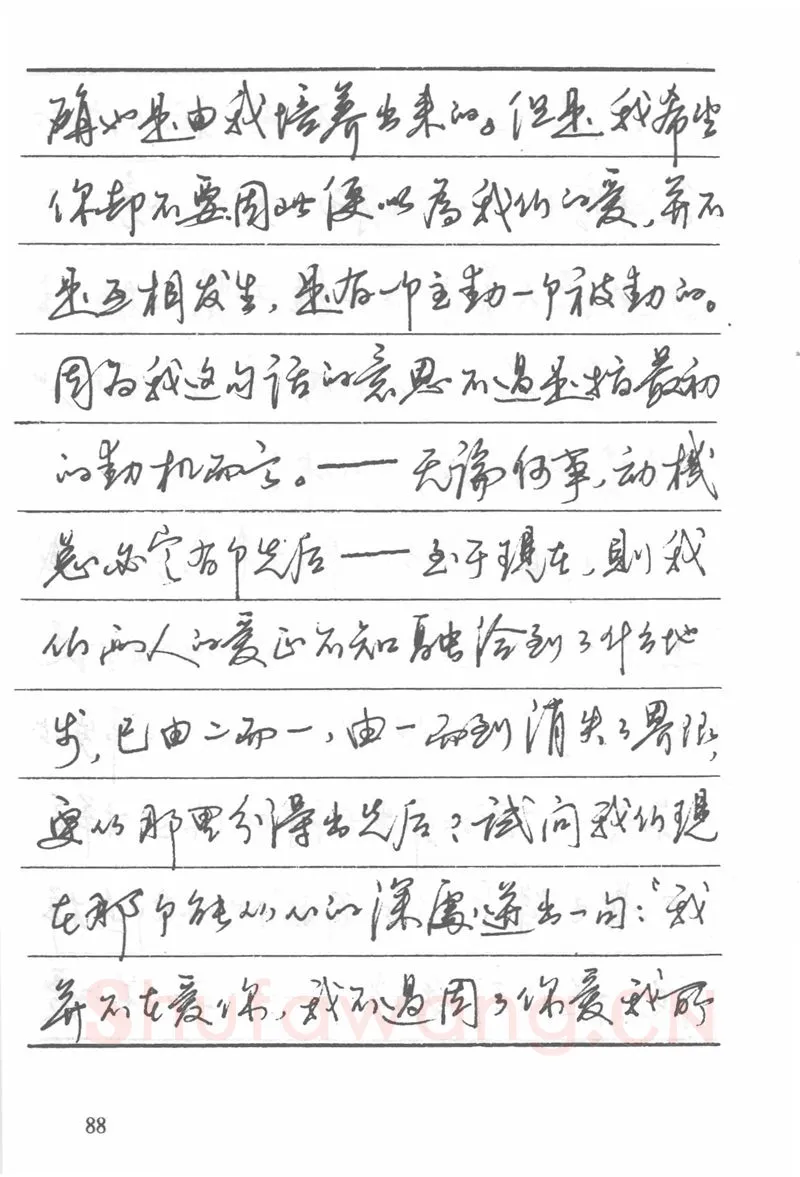 确如是由我培养出来的。但是我希望
你却不要因此便以為我们的爱，并不
是互相发生，是有一个主動一个被動的。
因为我这句话的意思不过是指最初
的動机而言。——无論何事，动機
总必定有个先后——至于現在，則我
们两人的爱正不知融洽到了什么地
步，已由二而一，由一而到消失了界限，
更从那里分得出先后？试问我们現
在那个能从心的深處迸出一句：“我
并不在爱你，我不过因了你爱我所
shufawang.CN
88